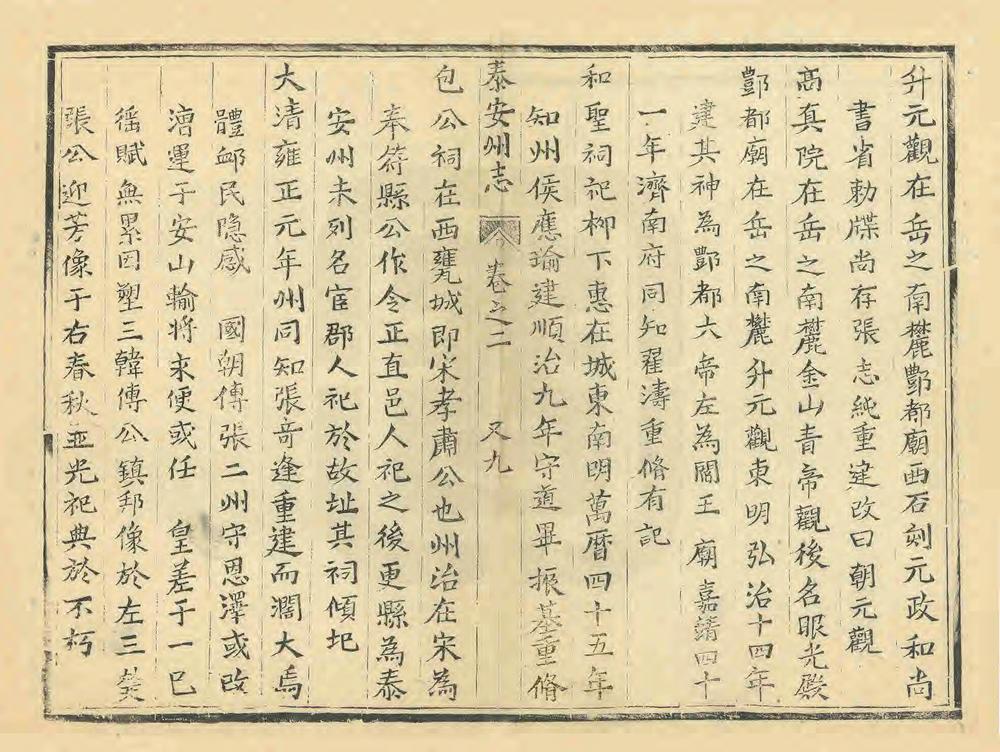 升元觀在岳之南麓酆都廟西石刻元政和尚
書省勅牒尚存張志純重建改曰朝元觀
高真院在岳之南麓金山青帝觀後名眼光殿
酆都廟在岳之南麓升元觀東明弘治十四年
建其神為酆都大帝左為閻王廟嘉靖四十
一年濟南府同知翟濤重脩有記
和聖祠祀柳下惠在城東南明萬曆四十五年
知州侯應瑜建順治九年守道畢振基重脩
泰安州志 卷之二 又九
包公祠在西甕城即宋孝肅公也州治在宋為
奉符縣公作令正直邑人祀之後更縣為泰
安州未列名宦郡人祀於故址其祠傾圮
大清雍正元年州同知張奇逢重建而濶大焉
體卹民隱感 國朝傅張二州守恩澤或改
漕運于安山輸將永便或任 皇差于一已
徭賦無累因塑三韓傅公鎮邦像於左三
張公迎芳像于右春秋並光祀典於不朽